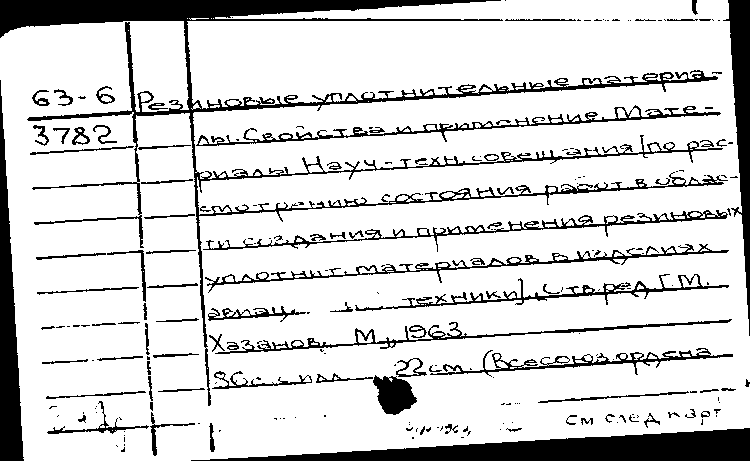 63-6 Резиновые уплотнительные материа-
3782 лы. Свойства и применение. Мате-
риалы Науч.-техн. совещания [по рас-
смотрению состояния работ в облас-
ти создания и применения резиновых
уплотнит. материалов в изделиях
авиац. техники]. Отв. ред. Г. М.
Хазанов. М., 1963.
96с. с илл. 22 см. (Всесоюз. ордена
См след карт